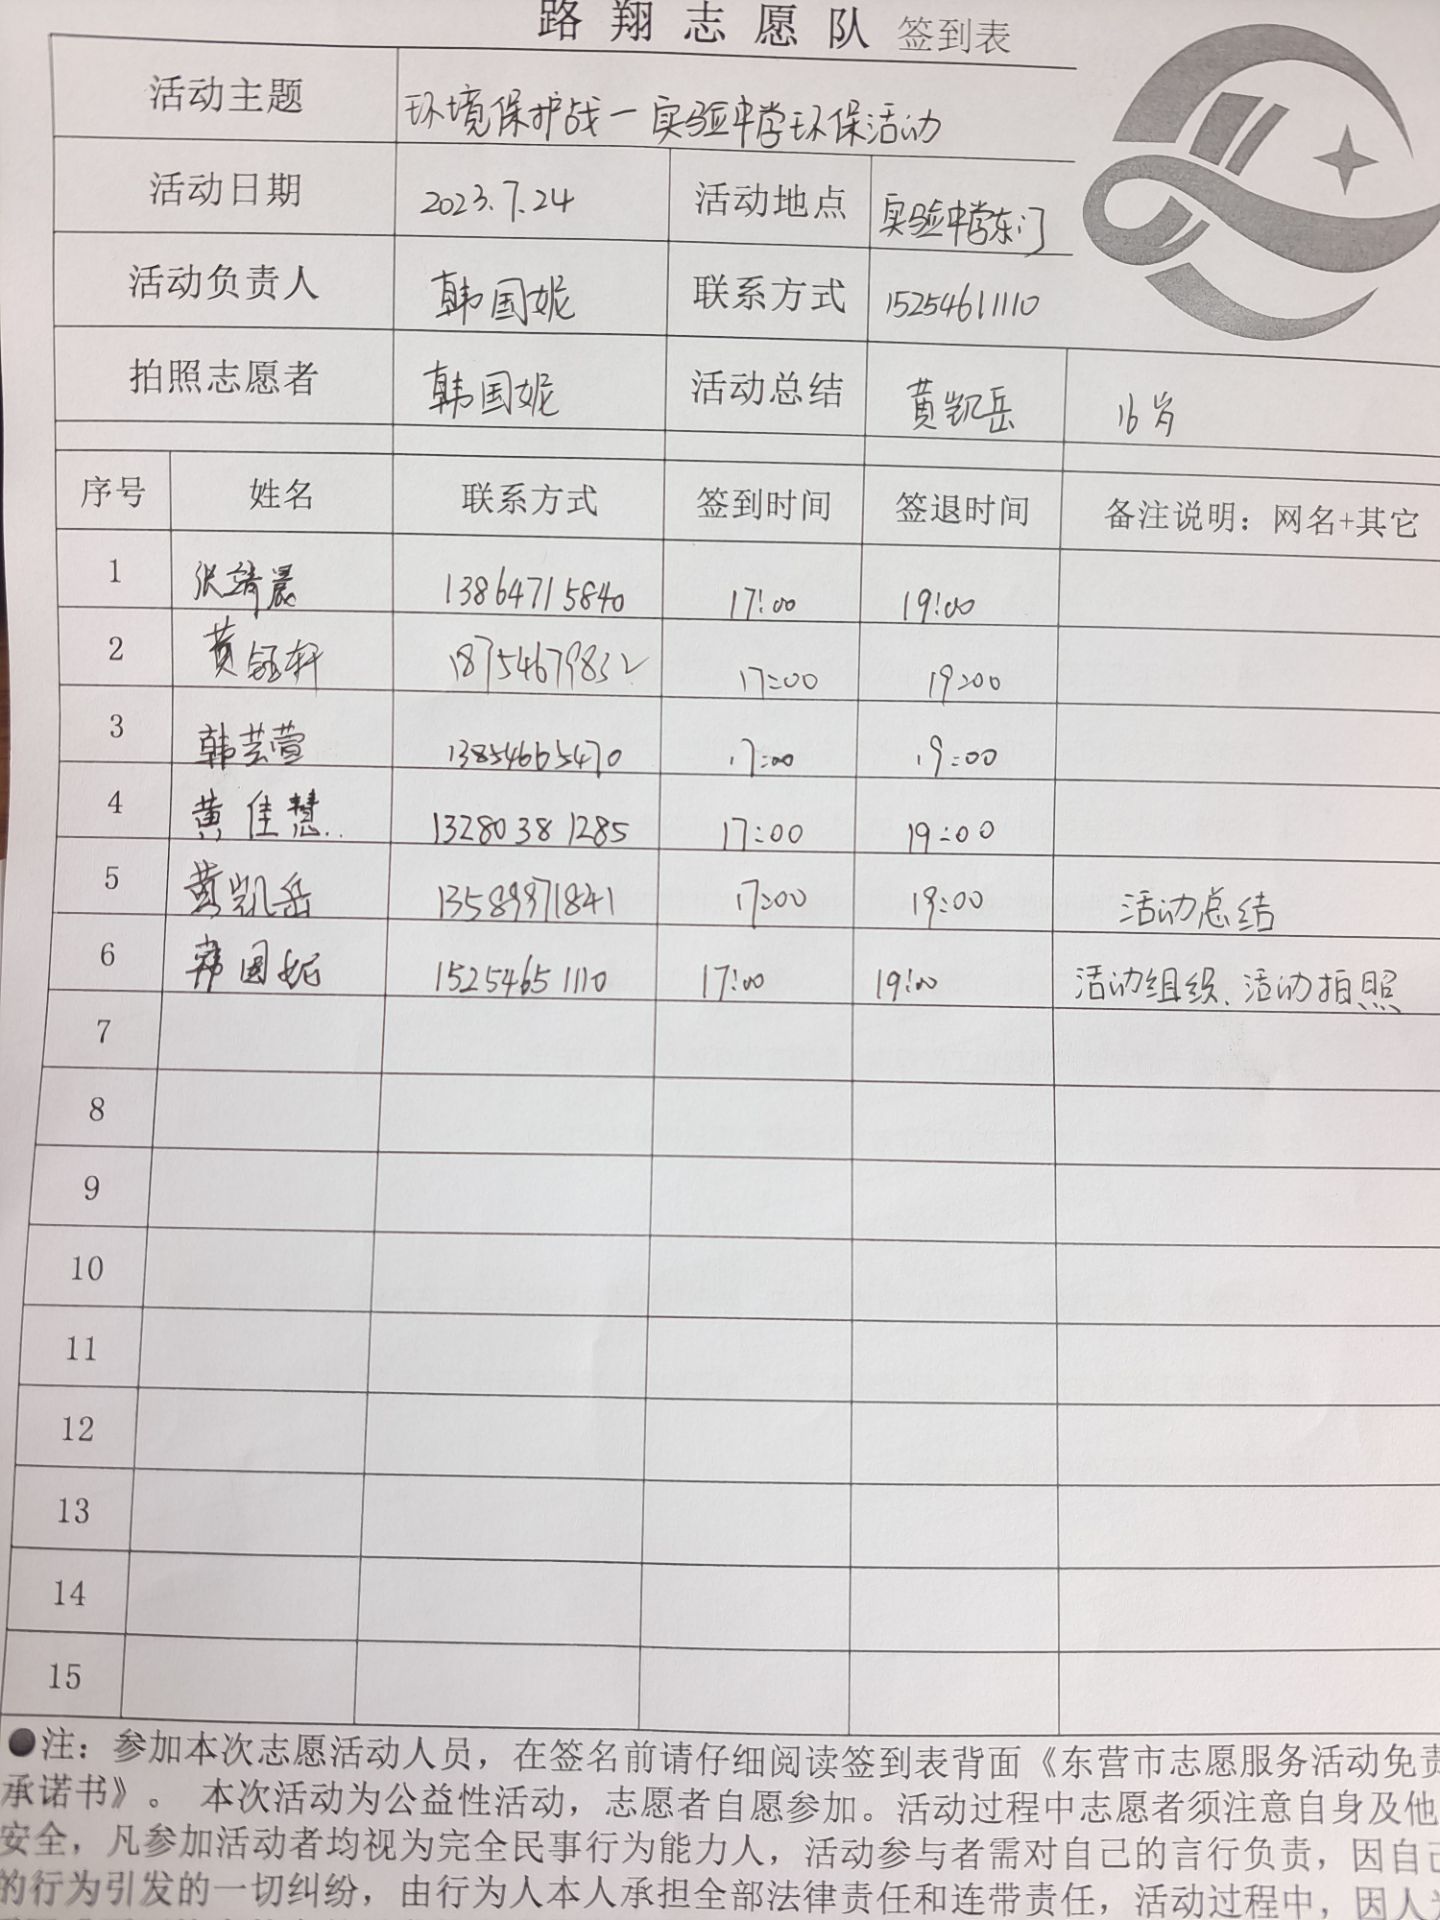 路翔志愿队 签到表
活动主题 环境保护战一实验中学环保活动
活动日期 2023.7.24 活动地点 实验中学东门
活动负责人 韩国妮 联系方式 15254611110
拍照志愿者 韩国妮 活动总结 黄凯岳 16岁
序号 姓名 联系方式 签到时间 签退时间 备注说明：网名+其它
1 张靖晨 13864715840 17:00 19:00
2 黄钰轩 18754679832 17:00 19:00
3 韩芸萱 13854665470 17:00 19:00
4 黄佳慧 13280381285 17:00 19:00
5 黄凯岳 13589971841 17:00 19:00 活动总结
6 韩国妮 15254651110 17:00 19:00 活动组织、活动拍照
7
8
9
10
11
12
13
14
15
●注：参加本次志愿活动人员，在签名前请仔细阅读签到表背面《东营市志愿服务活动免责
承诺书》。 本次活动为公益性活动，志愿者自愿参加。活动过程中志愿者须注意自身及他
安全，凡参加活动者均视为完全民事行为能力人，活动参与者需对自己的言行负责，因自己
的行为引发的一切纠纷，由行为人本人承担全部法律责任和连带责任，活动过程中，因人为